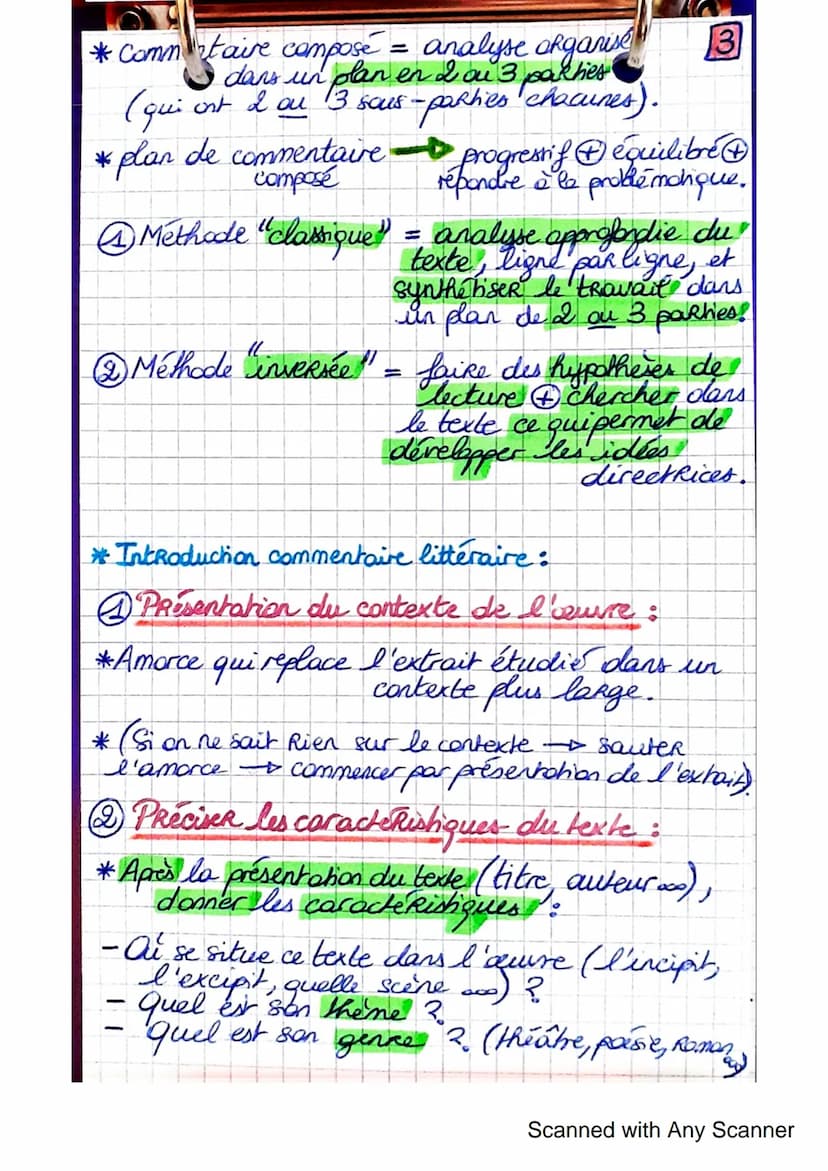 3
* Commentaire composé = analyse organisé
dans un plan en 2 ou 3 parties
(qui ont 2 ou 3 sous-parties chacunes).
* plan de commentaire → progressif ⊕ équilibré ⊕
composé répondre à la problématique.
① Méthode "classique" = analyse approfondie du
texte, ligne par ligne, et
synthétiser le travail dans
un plan de 2 ou 3 parties.
② Méthode "inversée" = faire des hypothèses de
lecture ⊕ chercher dans
le texte ce qui permet de
développer les idées
directrices.
* Introduction commentaire littéraire :
① Présentation du contexte de l'œuvre :
* Amorce qui replace l'extrait étudié dans un
contexte plus large.
* (Si on ne sait rien sur le contexte → sauter
l'amorce → commencer par présentation de l'extrait).
② Préciser les caractéristiques du texte :
* Après la présentation du texte (titre, auteur ...),
donner les caractéristiques :
- Où se situe ce texte dans l'œuvre (l'incipit,
l'excipit, quelle scène ...) ?
- Quel est son thème ?
- Quel est son genre ? (théâtre, poésie, roman ...)
Scanned with Any Scanner